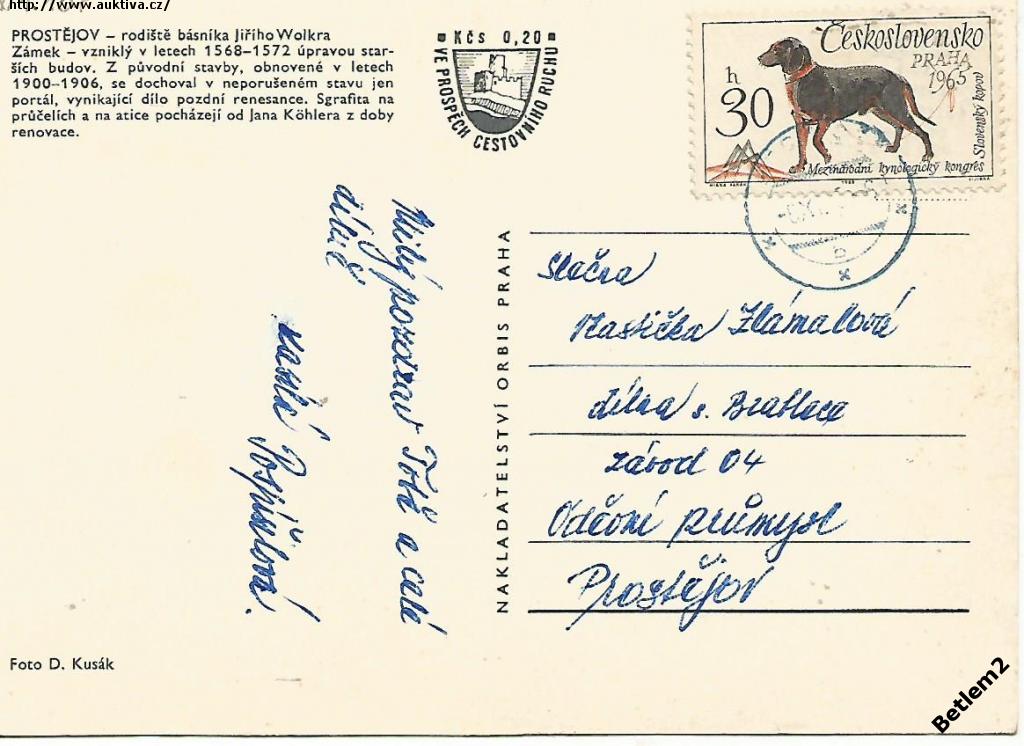 http://www.auktiva.cz/
PROSTĚJOV – rodiště básníka Jiřího Wolkra
Zámek – vzniklý v letech 1568–1572 úpravou star-
ších budov. Z původní stavby, obnovené v letech
1900–1906, se dochoval v neporušeném stavu jen
portál, vynikající dílo pozdní renesance. Sgrafita na
průčelích a na atice pocházejí od Jana Köhlera z doby
renovace.
Kčs 0,20
VE PROSPĚCH CESTOVNÍHO RUCHU
Československo
PRAHA
1965
h
30
Slovenský kopov
Mezinárodní kynologický kongres
Milý pozdrav Tobě a celé
dílně
Pospíšilová.
NAKLADATELSTVÍ ORBIS PRAHA
Slečna
Nastička Zlámalová
dílna s.
závod 04
Oděvní průmysl
Prostějov
Foto D. Kusák
Betlem2